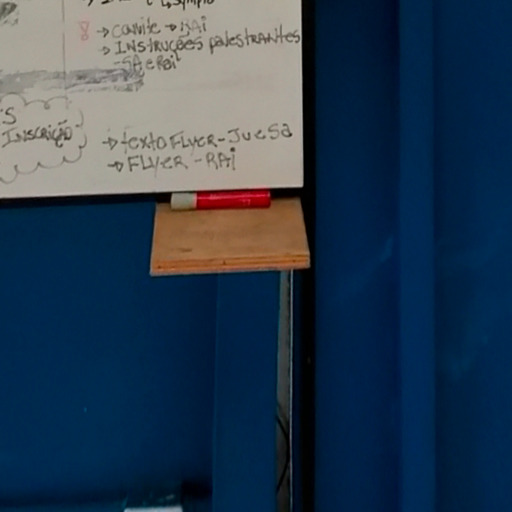 Sympla
→ convite → RAi
→ INSTRUÇÕES palestrantes
- SA e RAi
S
INSCRIÇÃO
→ texto FLYER - JUESA
→ FLYER - RAi